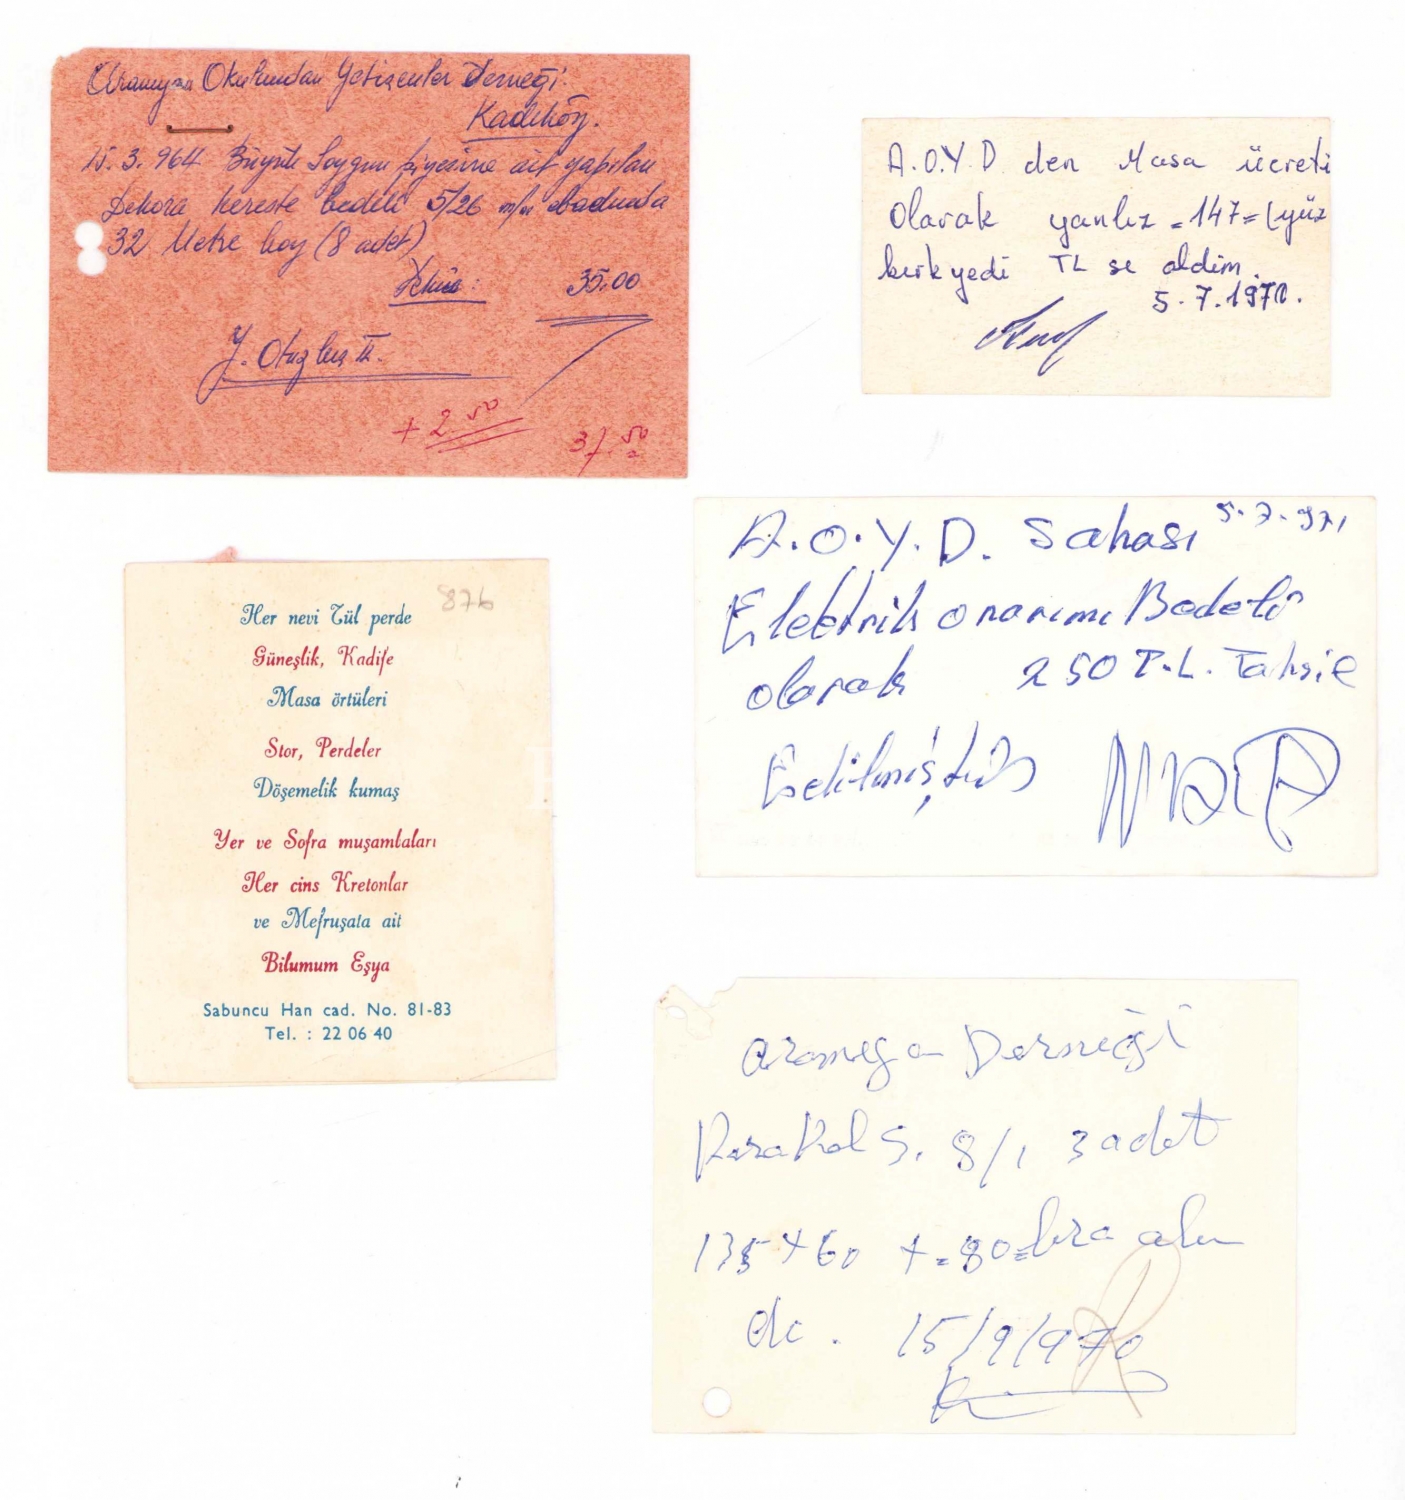 Aramyan Okulundan Yetişenler Derneği.
Kadıköy.
15.3.964 Büyük Soygun piyesine ait yapılan
Dekora kereste bedeli 5/26 m/m ebadında
32 Metre boy (8 adet)
35.00
+ 2.50
37.50
A.O.Y.D den Masa ücreti
Olarak yanlız =147= (yüz
kırkyedi TL sı aldım.
5.7.1970.
A.O.Y.D. Sahası 5.7.971
Elektrik onarımı Bedeli
olarak 250 T.L. Tahsil
Edilmiştir
876
Her nevi Tül perde
Güneşlik, Kadife
Masa örtüleri
Stor, Perdeler
Döşemelik kumaş
Yer ve Sofra muşambaları
Her cins Kretonlar
ve Mefruşata ait
Bilumum Eşya
Sabuncu Han cad. No. 81-83
Tel. : 22 06 40
Aramyan Derneği
Karakol S. 8/1 3 adet
135 + 60 +=80= lira alın
dı. 15/9/970